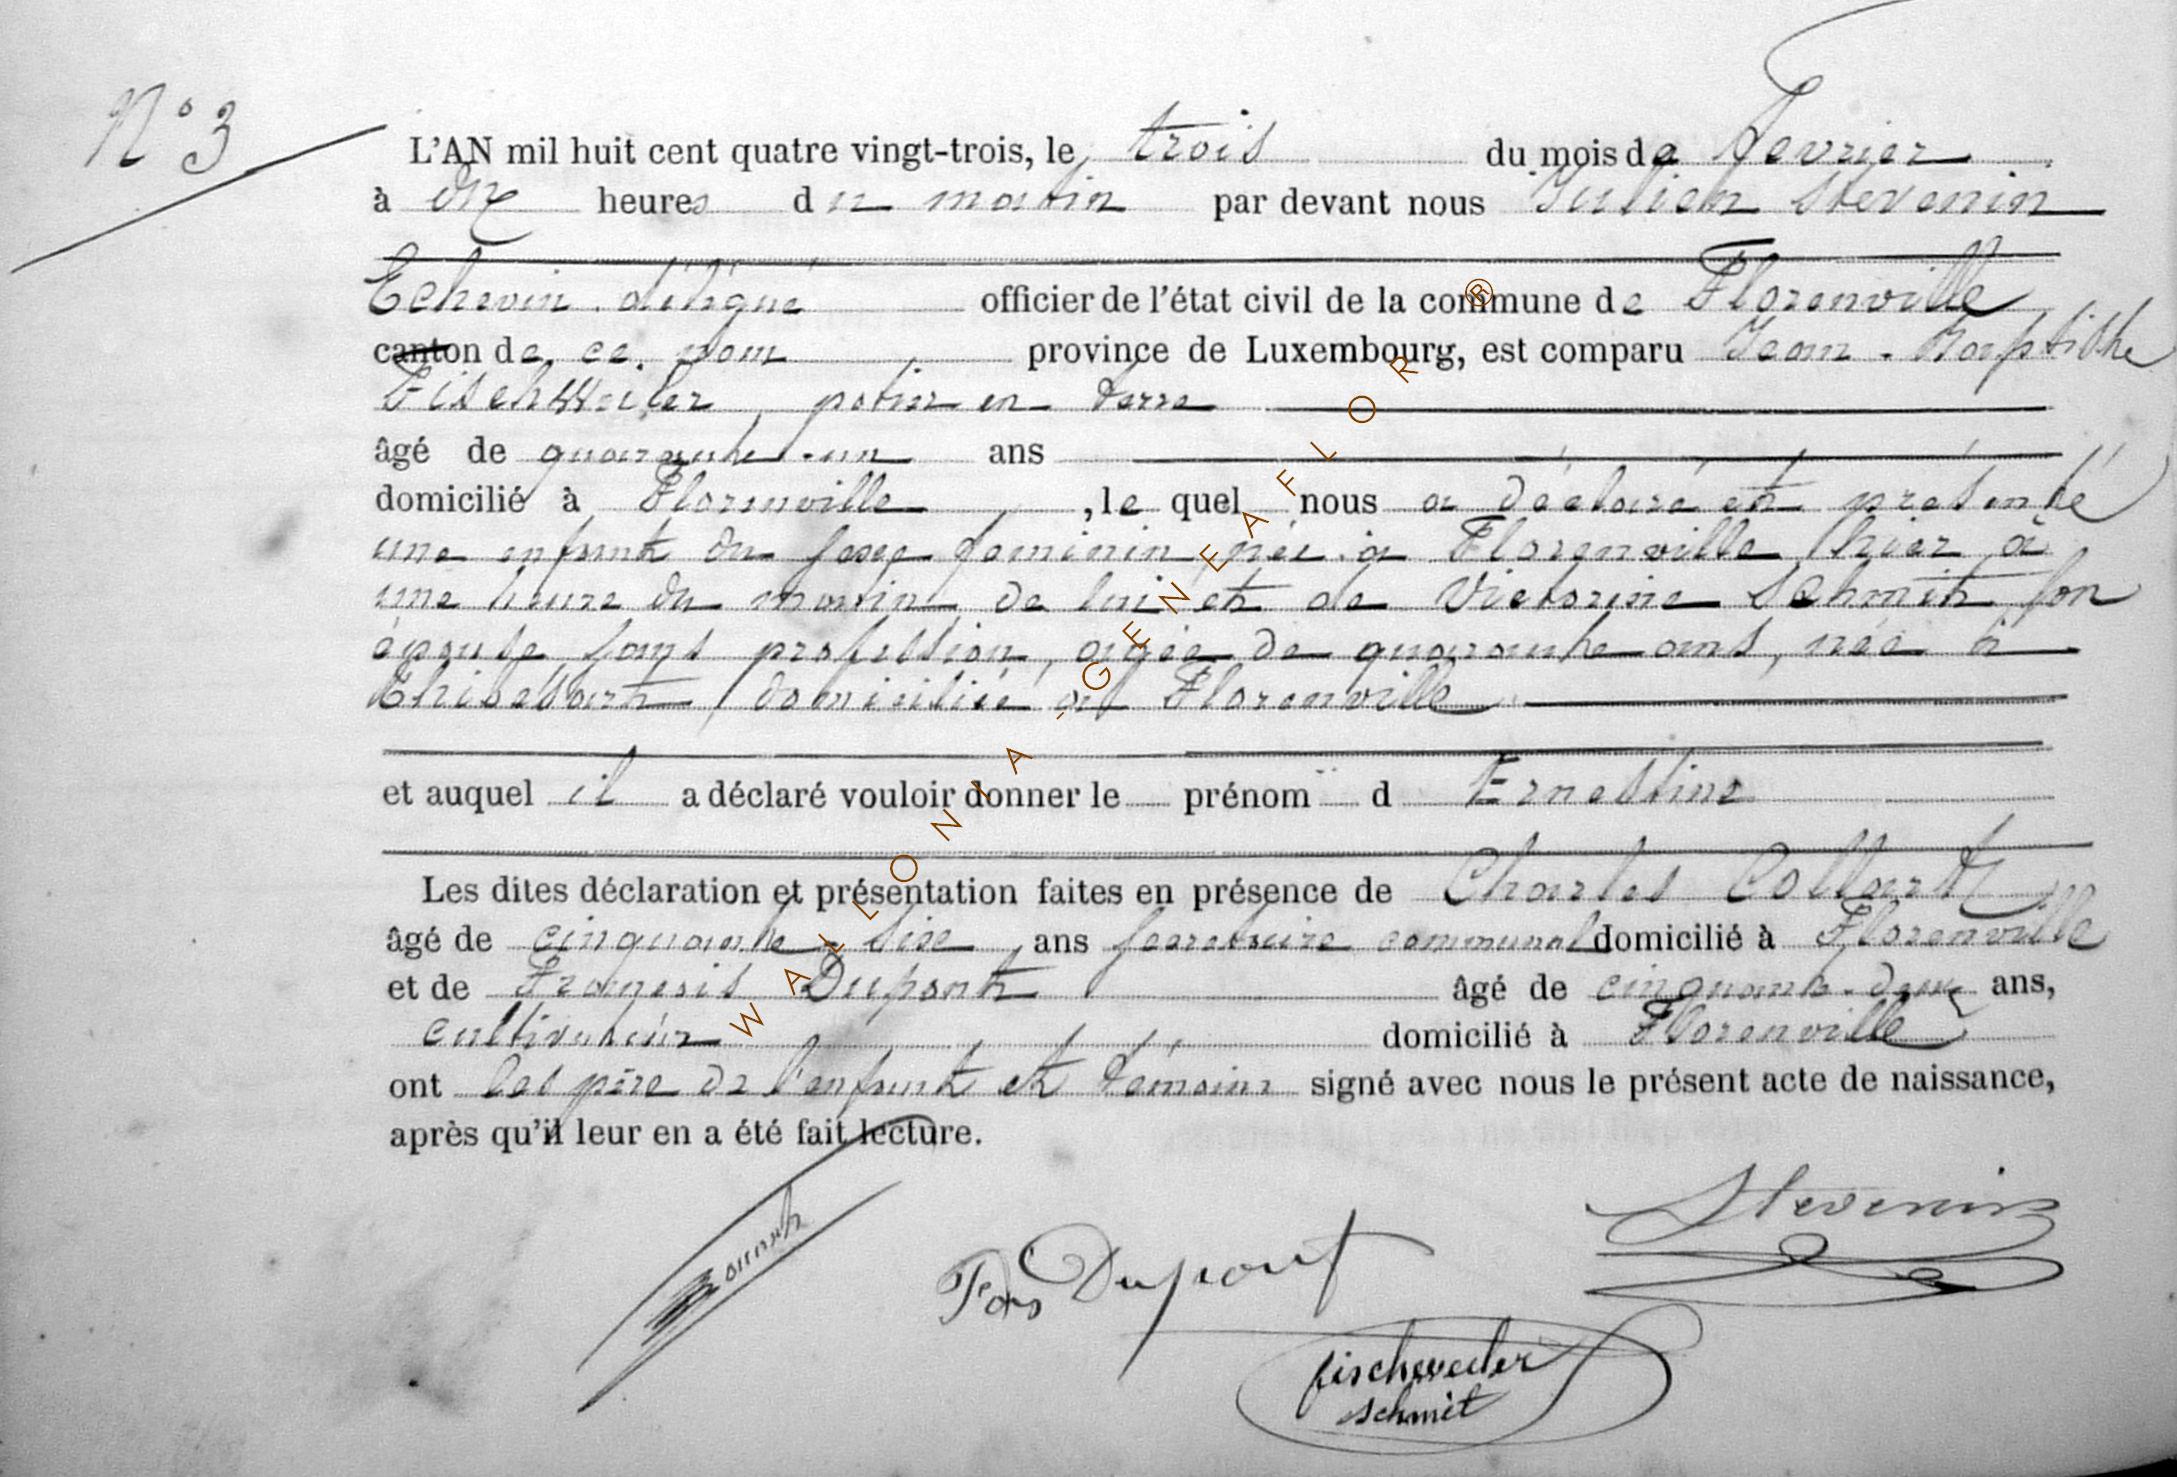 N° 3
L'AN mil huit cent quatre vingt-trois, le trois du mois de Fevrier
à dix heures du matin par devant nous Julien Stevenin
Echevin délégué officier de l'état civil de la commune de Florenville
canton de ce nom province de Luxembourg, est comparu Jean-Baptiste
Fischweiler, potier en terre
âgé de quarante-un ans
domicilié à Florenville, le quel nous a déclaré et présenté
une enfant du sexe feminin née à Florenville hier à
une heure du matin de lui et de Victorine Schmit son
épouse sans profession, agée de quarante ans, née à
domiciliée à Florenville
et auquel il a déclaré vouloir donner le prénom d Ernestine
Les dites déclaration et présentation faites en présence de Charles Collard
âgé de cinquante-six ans secretaire communal domicilié à Florenville
et de François Dupont âgé de cinquante-deux ans,
cultivateur domicilié à Florenville
ont les père de l'enfant et témoins signé avec nous le présent acte de naissance,
après qu'il leur en a été fait lecture.
Stevenin
Fois Dupont
fischweiler
schmit
WALLONIA-GENEAFLOR ®